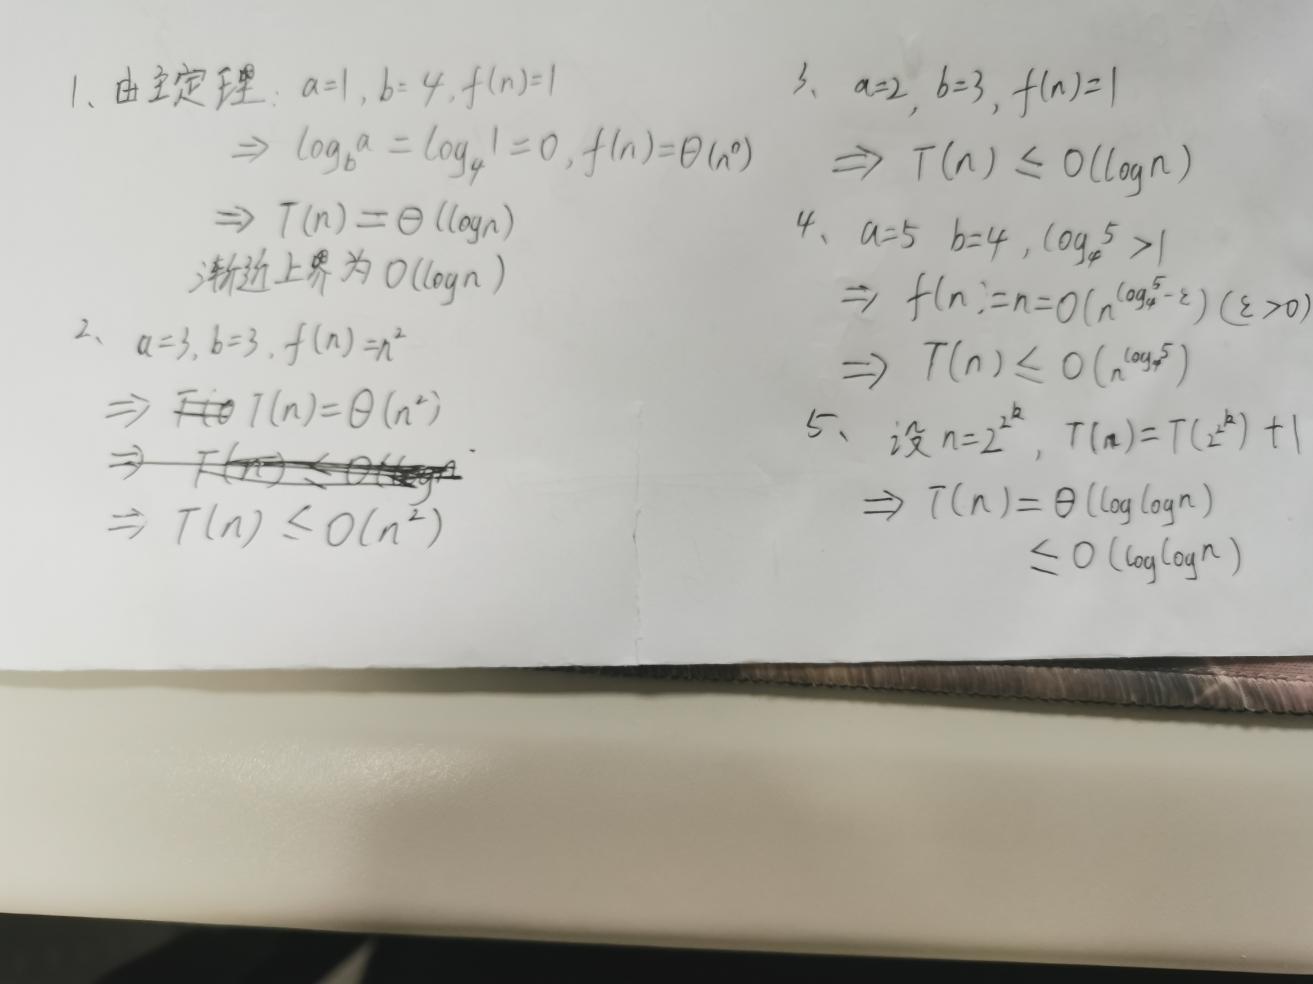 1、由主定理: a=1, b=4, f(n)=1
⇒ log_b a = log_4 1 = 0, f(n)=θ(n⁰)
⇒ T(n) = θ(logn)
渐近上界为 O(logn)
2、 a=3, b=3, f(n)=n²
⇒ T(n)=θ(n²)
⇒ T(n) ≤ O(logn
⇒ T(n) ≤ O(n²)
3、 a=2, b=3, f(n)=1
⇒ T(n) ≤ O(logn)
4、 a=5 b=4, log_4 5 >1
⇒ f(n)=n=O(n^(log_4 5 - ε)) (ε>0)
⇒ T(n) ≤ O(n^(log_4 5))
5、 设 n=2^(2^k), T(n)=T(2^(2^k))+1
⇒ T(n) = θ(loglogn)
≤ O(loglogn)